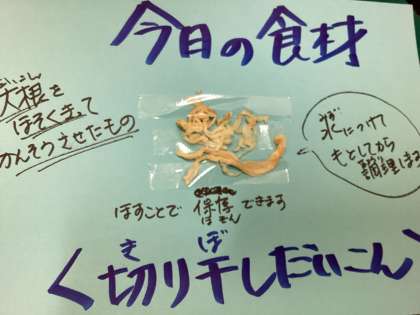 今日の食材
だいこん
大根を
ほそくきって
かんそうさせたもの
みず
水につけて
もどしてから
調理します
ほすことで保存できます
ほぞん
き ぼ
〈切り干しだいこん〉